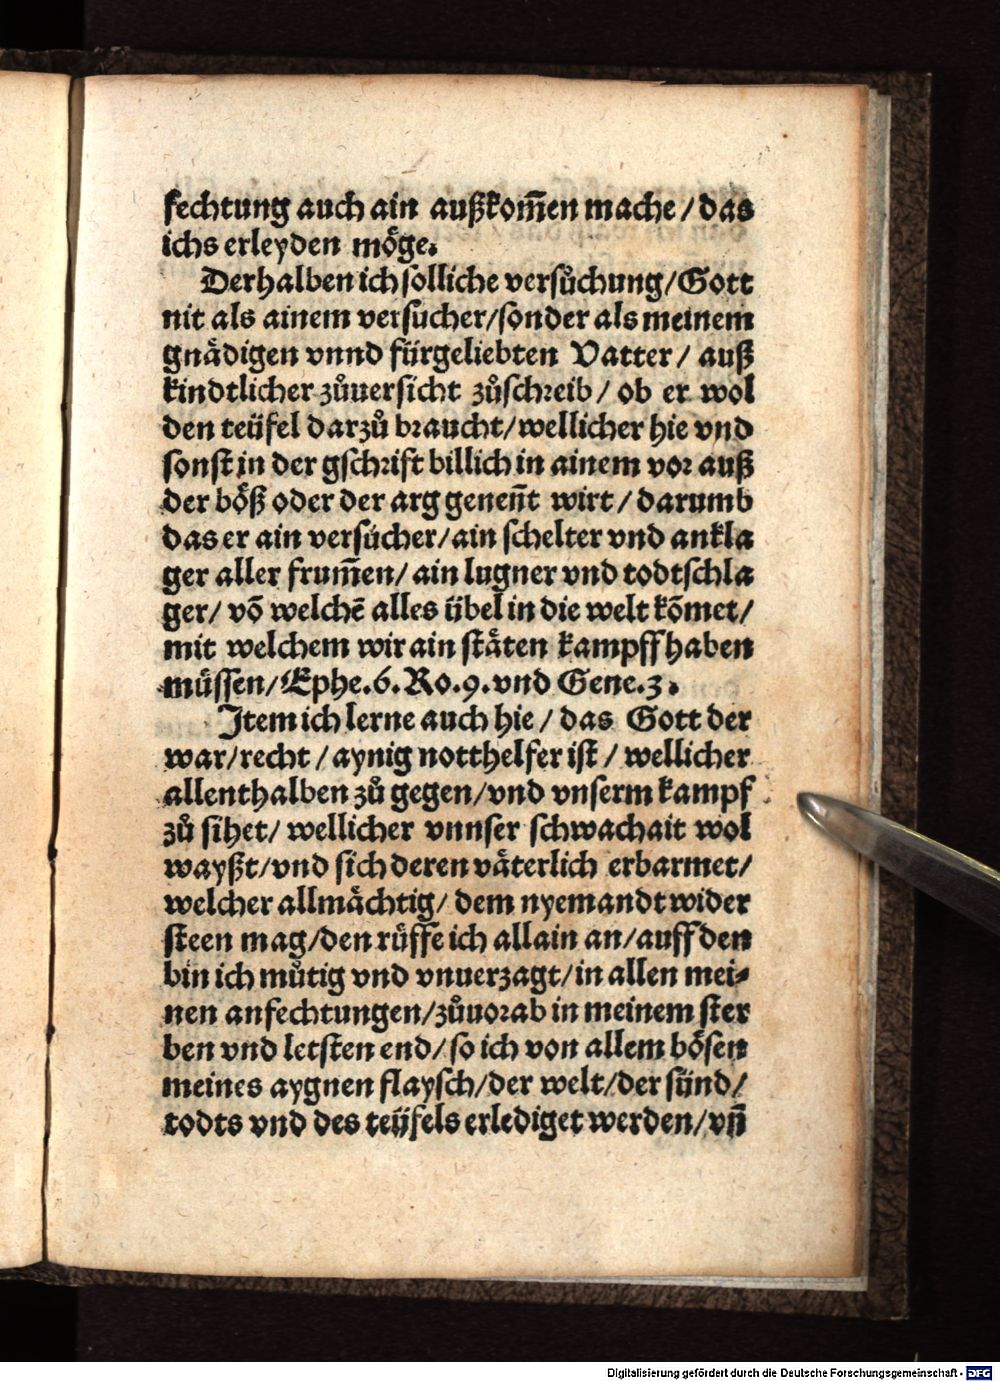 fechtung auch ain außkom̃en mache / das
ichs erleyden möge.
Derhalben ich solliche versůchung/Gott
nit als ainem versucher/sonder als meinem
gnädigen vnnd fürgeliebten Vatter / auß
kindtlicher zůuersicht zůschreib / ob er wol
den teüfel darzů braucht/wellicher hie vnd
sonst in der gschrift billich in ainem vor auß
der böß oder der arg geneñt wirt / darumb
das er ain versůcher/ain schelter vnd ankla
ger aller frum̃en/ ain lugner vnd todtschla
ger/ võ welchẽ alles übel in die welt kõmet/
mit welchem wir ain stäten kampff haben
müssen/Ephe.6.Ro.9.vnd Gene.3.
Item ich lerne auch hie / das Gott der
war/recht / aynig notthelfer ist / wellicher
allenthalben zů gegen/vnd vnserm kampf
zů sihet/ wellicher vnnser schwachait wol
wayßt/vnd sich deren väterlich erbarmet/
welcher allmächtig/ dem nyemandt wider
steen mag/den rüffe ich allain an/auff den
bin ich můtig vnd vnuerzagt/in allen mei⸗
nen anfechtungen/zůuorab in meinem ster
ben vnd letsten end/so ich von allem bösen
meines aygnen flaysch/der welt/der sünd/
todts vnd des teüfels erlediget werden/vñ
Digitalisierung gefördert durch die Deutsche Forschungsgemeinschaft - DFG